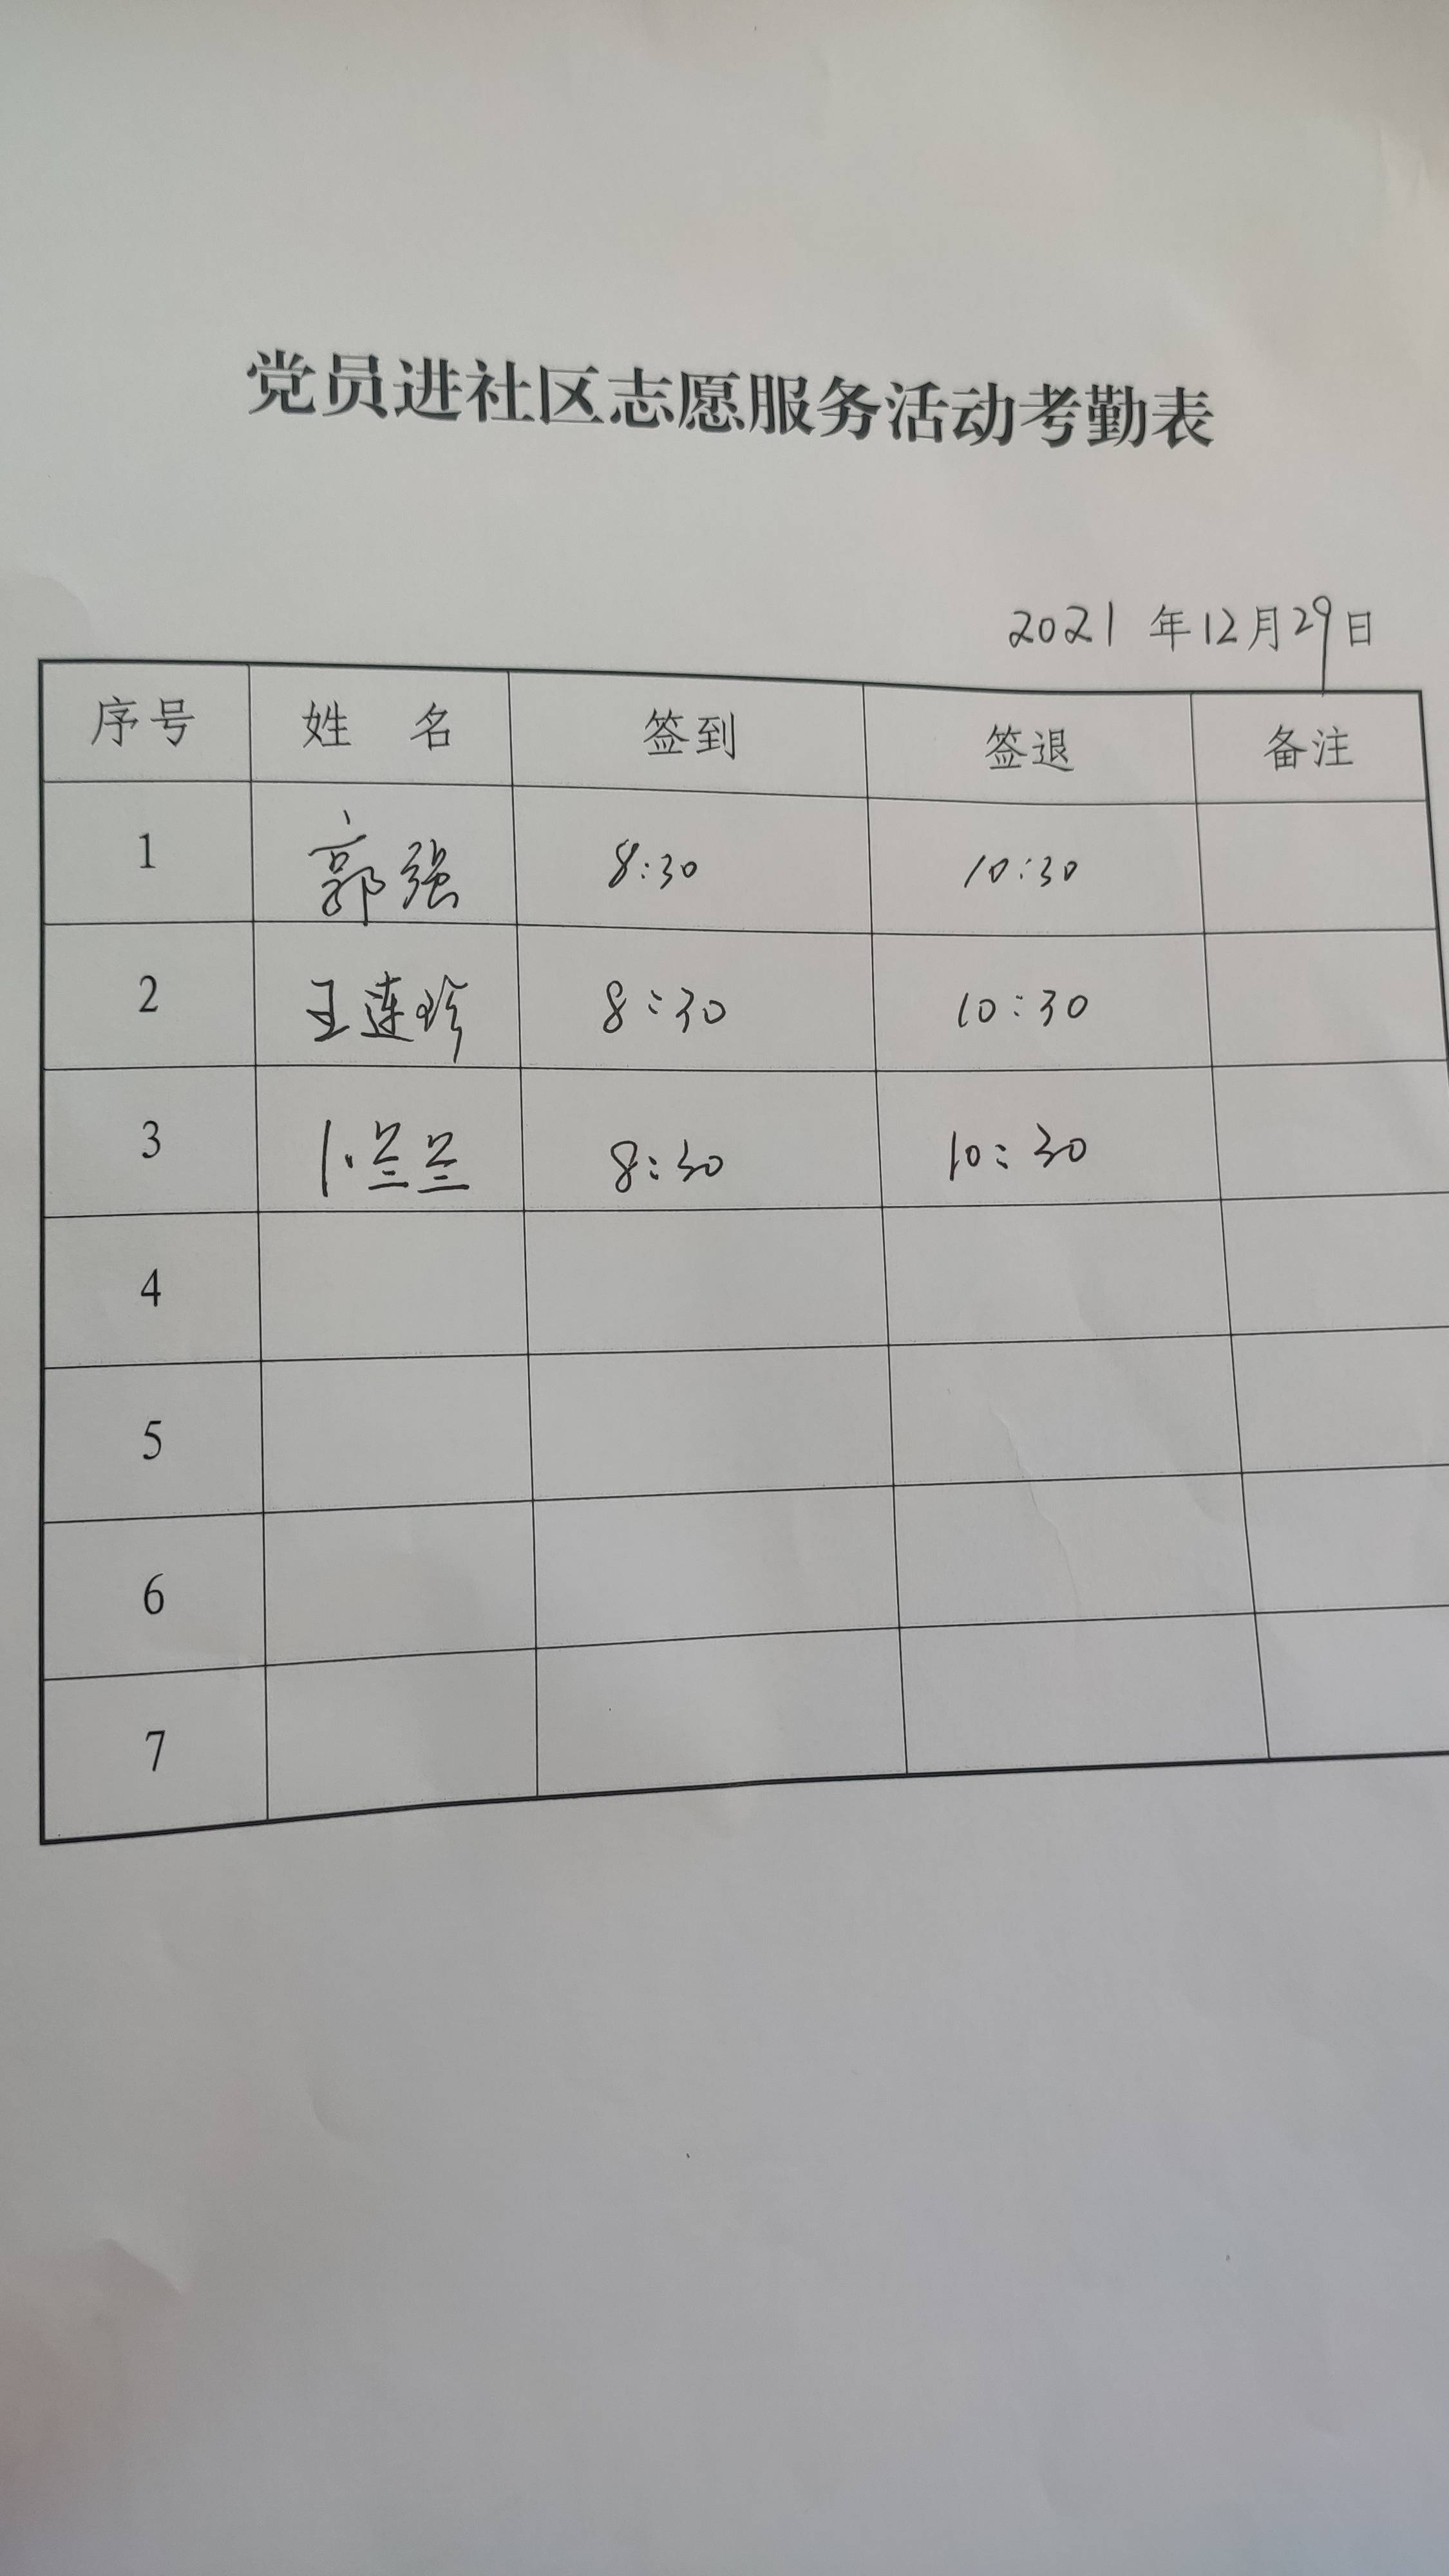 党员进社区志愿服务活动考勤表
2021 年12月29日
序号 姓 名 签到 签退 备注
1 郭强 8:30 10:30
2 王连珍 8:30 10:30
3 卜兰兰 8:30 10:30
4
5
6
7